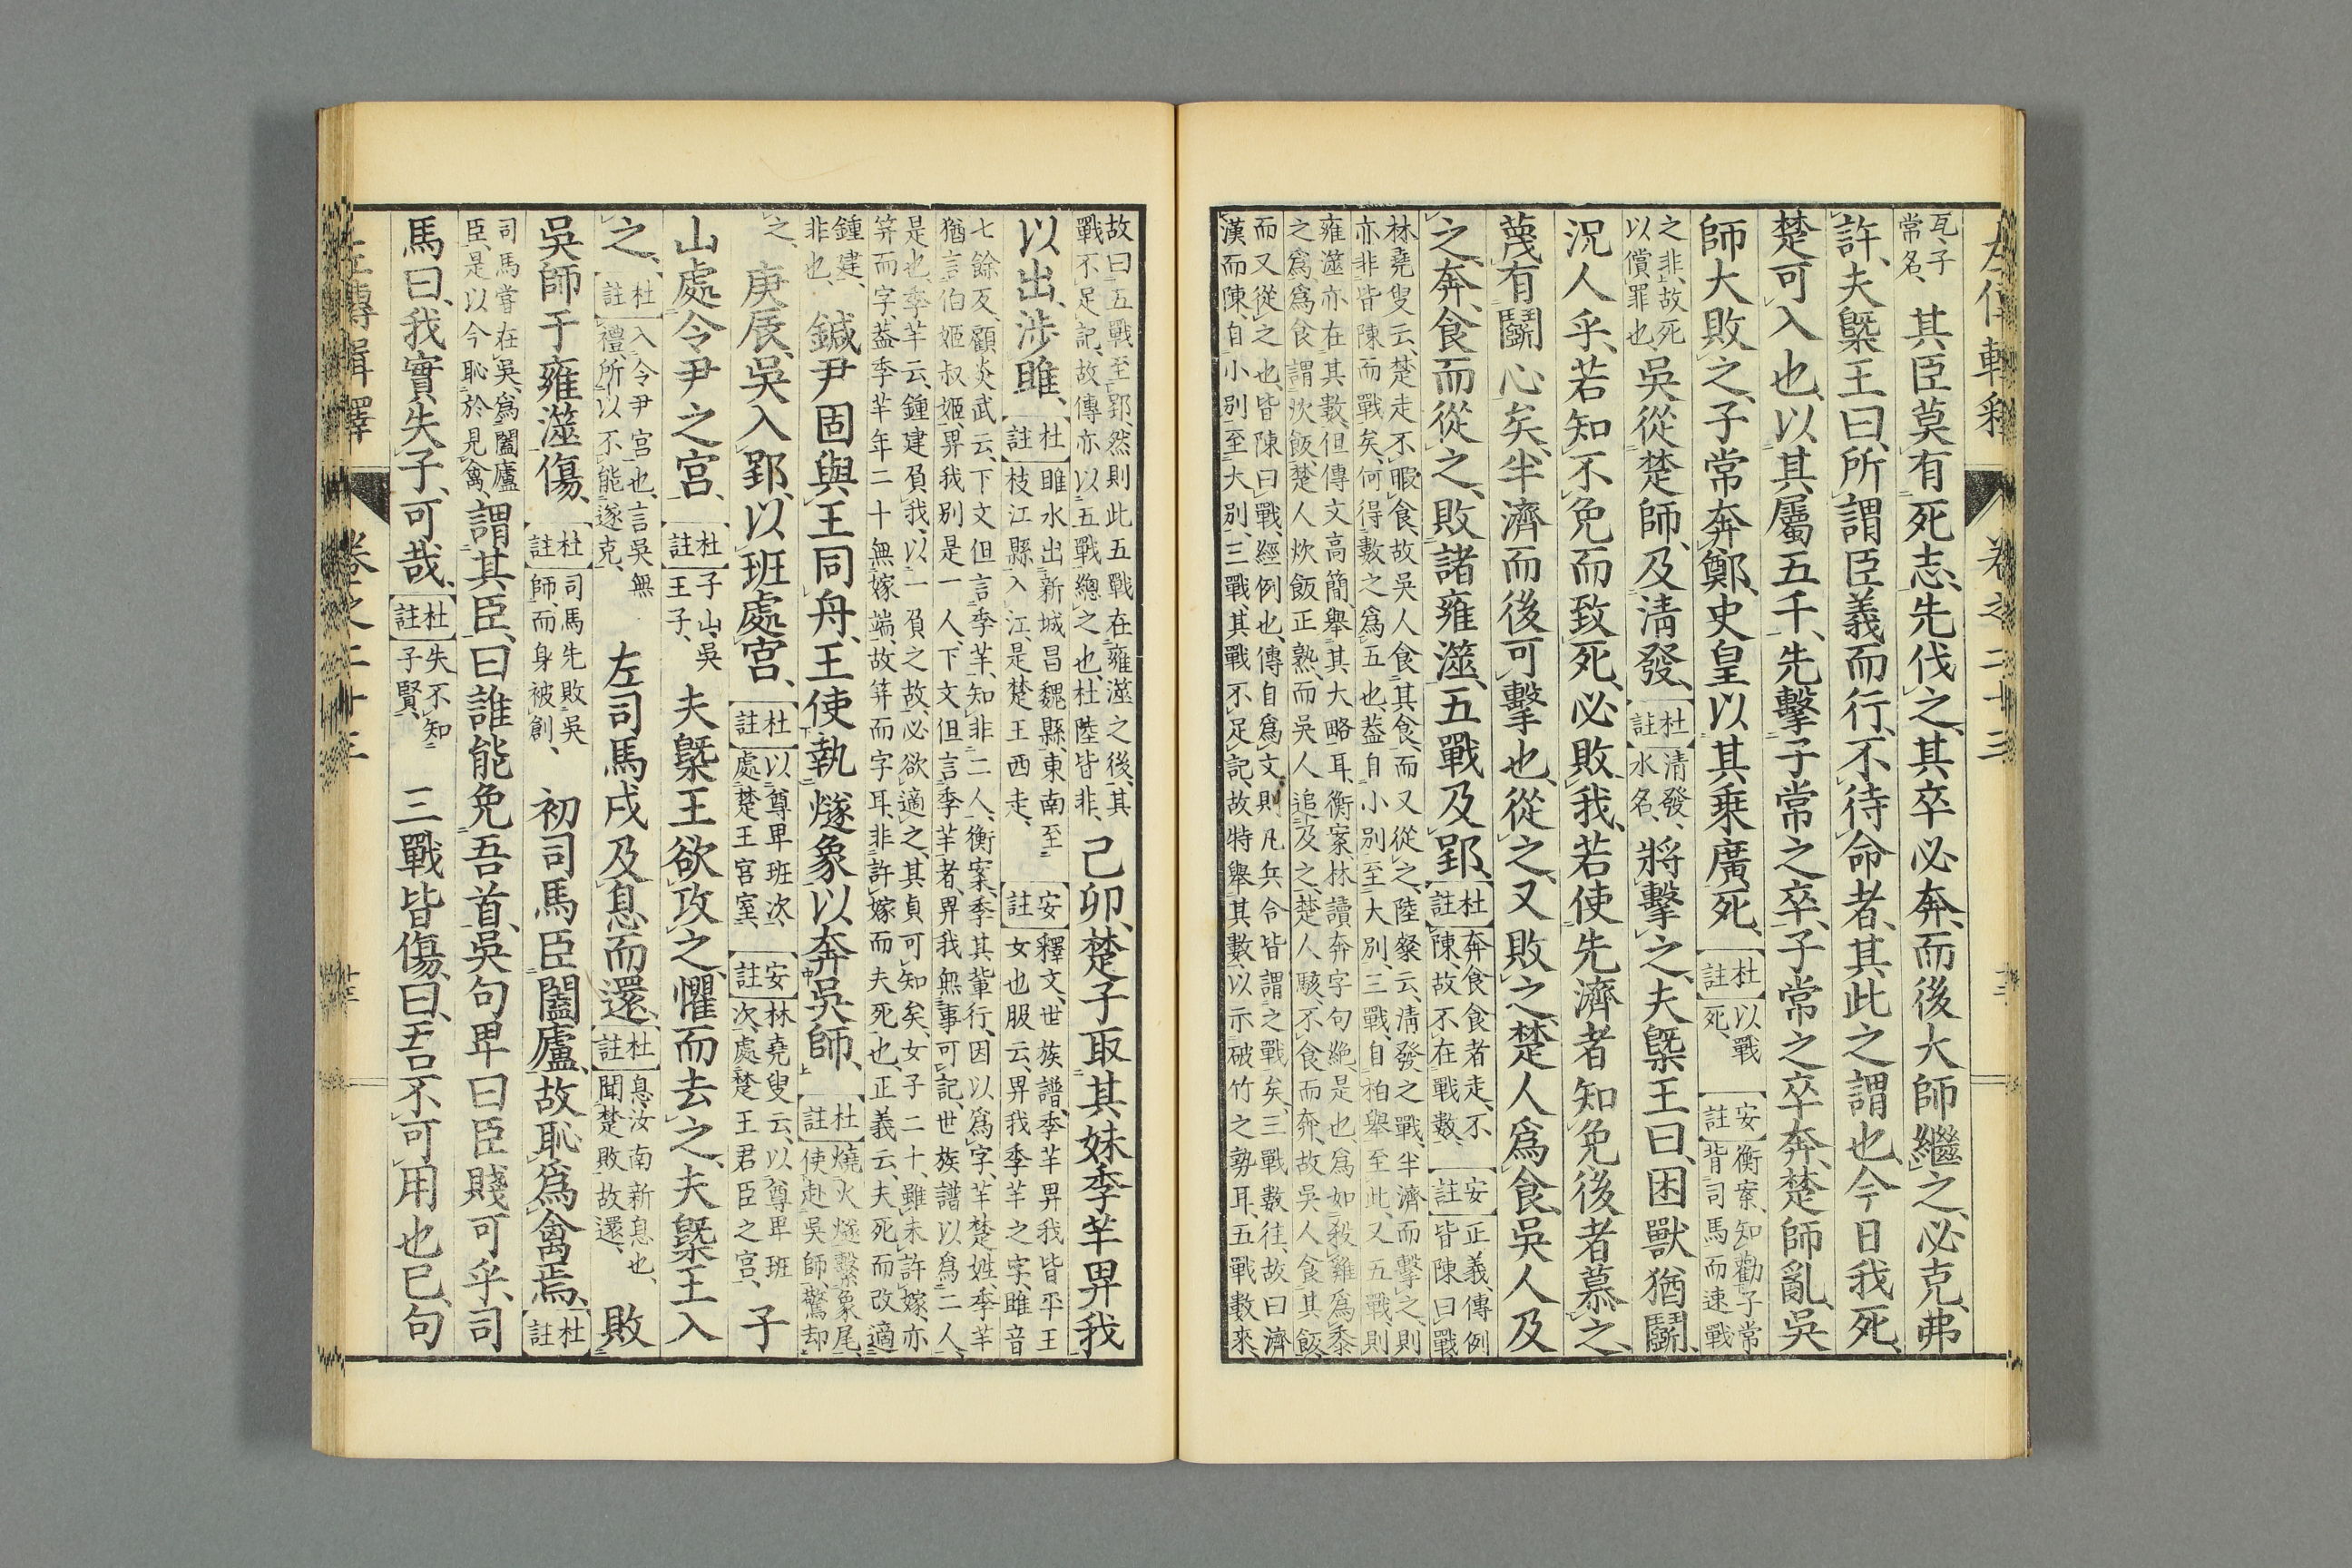 左傳輯釋 卷之二十三 十三
瓦、子常名、 其臣莫有死志、先伐之、其卒必奔、而後大師繼之、必克、弗
許、夫槩王曰、所謂臣義而行、不待命者、其此之謂也、今日我死、
楚可入也、以其屬五千、先擊子常之卒、子常之卒奔、楚師亂、吳
師大敗之、子常奔鄭、史皇以其乘廣死、杜註 以戰死、 安註 衡案、知勸子常背司馬而速戰
之非、故死以償罪也、 吳從楚師、及淸發、杜註 淸發、水名、 將擊之、夫槩王曰、困獸猶鬭、
況人乎、若知不免而致死、必敗我、若使先濟者知免、後者慕之、
蔑有鬭心矣、半濟而後可擊也、從之、又敗之、楚人爲食、吳人及
之、奔、食而從之、敗諸雍澨、五戰及郢、杜註 奔食食者走、不陳、故不在戰數、 安註 正義、傳例皆陳曰戰
林堯叟云、楚走不暇食、故吳人食其食、而又從之、陸粲云、淸發之戰、半濟而擊之、則
亦非皆陳而戰矣、何得數之爲五也、蓋自小別至大別、三戰、自柏舉至此、又五戰、則
雍澨亦在其數、但傳文高簡、舉其大略耳、衡案、林讀奔字句絶、是也、爲如殺雞爲黍
之爲、爲食、謂炊飯、楚人炊飯正熟、而吳人追及之、楚人駭、不食而奔、故吳人食其飯、
而又從之也、皆陳曰戰、經例也、傳自爲文、則凡兵合皆謂之戰矣、三戰數往、故曰濟
漢而陳、自小別至大別、三戰、其戰不足記、故特舉其數、以示破竹之勢耳、五戰數來、
故曰五戰至郢、然則此五戰在雍澨之後、其
戰不足記、故傳亦以五戰總之也、杜陸皆非、 己卯、楚子取其妹季羋畀我
以出、涉雎、杜註 雎水出新城昌魏縣、東南至枝江縣入江、是楚王西走、 安註 釋文、世族譜、季羋畀我皆平王女也、服云、畀我季羋之字、雎音
七餘反、顧炎武云、下文但言季羋、知非二人、衡案、季其輩行、因以爲字、羋楚姓、季羋
猶言伯姬叔姬、畀我別是一人、下文但言季羋者、畀我無事可記、世族譜以爲二人、
是也、季羋云、鍾建負我、以一負之故、必欲適之、其貞可知矣、女子二十、雖未許嫁、亦
筓而字、蓋季羋年二十無嫁端、故筓而字耳、非許嫁而夫死也、正義云、夫死而改適
鍾建、非也、 鍼尹固與王同舟、王使執燧象以奔吳師、杜註 燒火燧繫象尾、使赴吳師、驚却
之、 庚辰、吳入郢、以班處宮、杜註 以尊卑班次、處楚王宮室、 安註 林堯叟云、以尊卑班次、處楚王君臣之宮、 子
山處令尹之宮、杜註 子山、吳王子、 夫槩王欲攻之、懼而去之、夫槩王入
之、杜註 入令尹宮也、言吳無禮、所以不能遂克、 左司馬戌及息而還、杜註 息汝南新息也、聞楚敗、故還、 敗
吳師于雍澨、傷、杜註 司馬先敗吳師、而身被創、 初司馬臣闔廬、故恥爲禽焉、杜註
司馬嘗在吳、爲闔廬臣、是以今恥於見禽、 謂其臣曰、誰能免吾首、吳句卑曰、臣賤可乎、司
馬曰、我實失子、可哉、杜註 失不知子賢、 三戰皆傷、曰、吾不可用也已、句
左傳輯釋 卷之二十三 十三